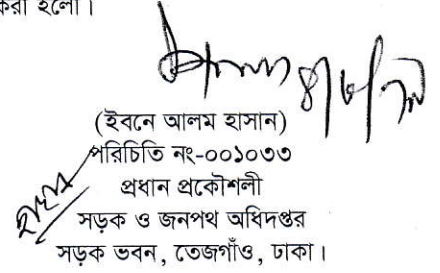 করা হলো।
(ইবনে আলম হাসান)
পরিচিতি নং-০০১০৩৩
প্রধান প্রকৌশলী
সড়ক ও জনপথ অধিদপ্তর
সড়ক ভবন, তেজগাঁও, ঢাকা।